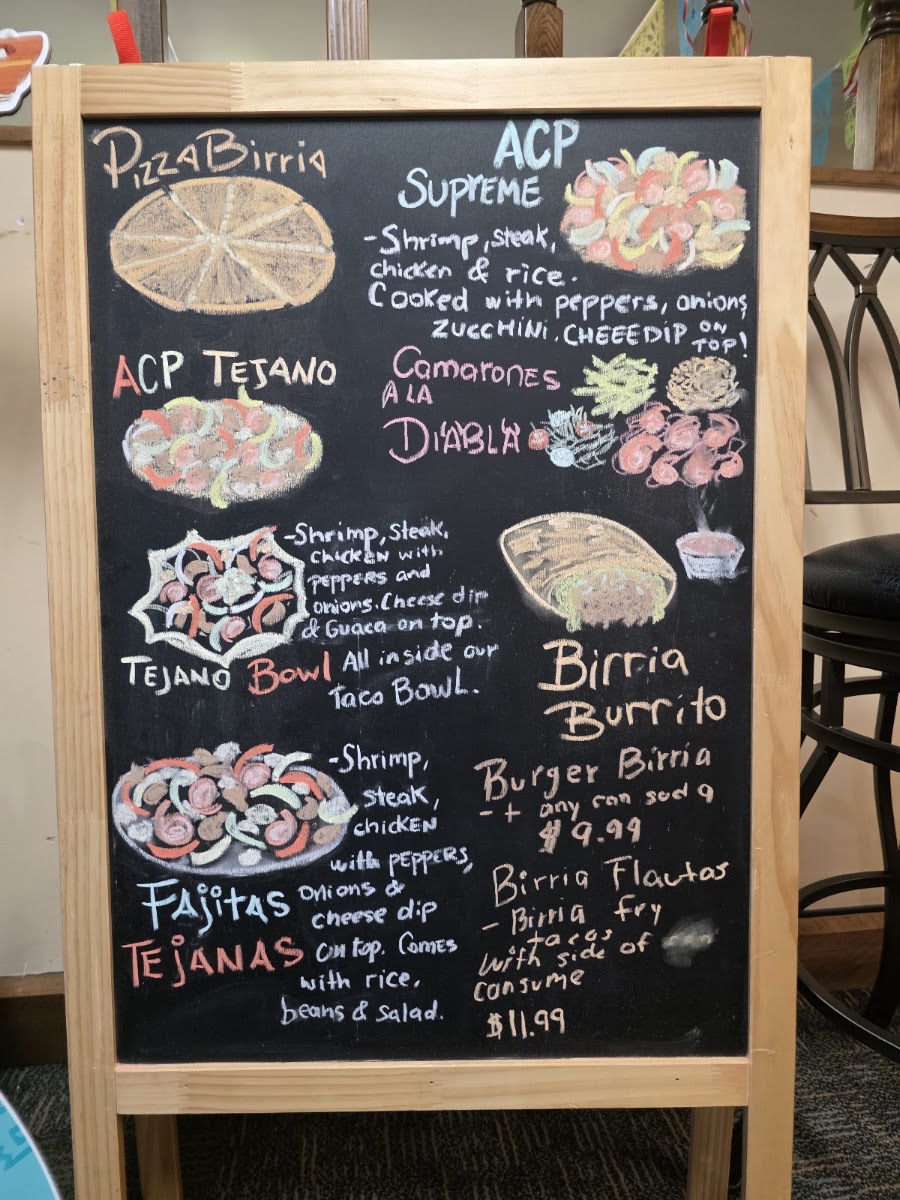 PizzaBirria
ACP
SUPREME
-Shrimp, steak,
chicken & rice.
Cooked with peppers, onions,
ZUCCHINI. CHEEEDIP ON
TOP!
ACP TEJANO
Camarones
A LA
DIABLA
-Shrimp, Steak,
chicken with
PEPPERS and
onions. Cheese dip
& Guaca on top.
All inside our
Taco BOWL.
TEJANO Bowl
Birria
Burrito
-Shrimp,
steak,
chicken
with PEPPERS,
onions &
cheese dip
on top. Comes
with rice,
beans & salad.
FAjitAS
TEjANAS
Burger Birria
-+ any can soda
$9.99
Birria Flautas
- Birria fry
tacos
with side of
consume
$11.99